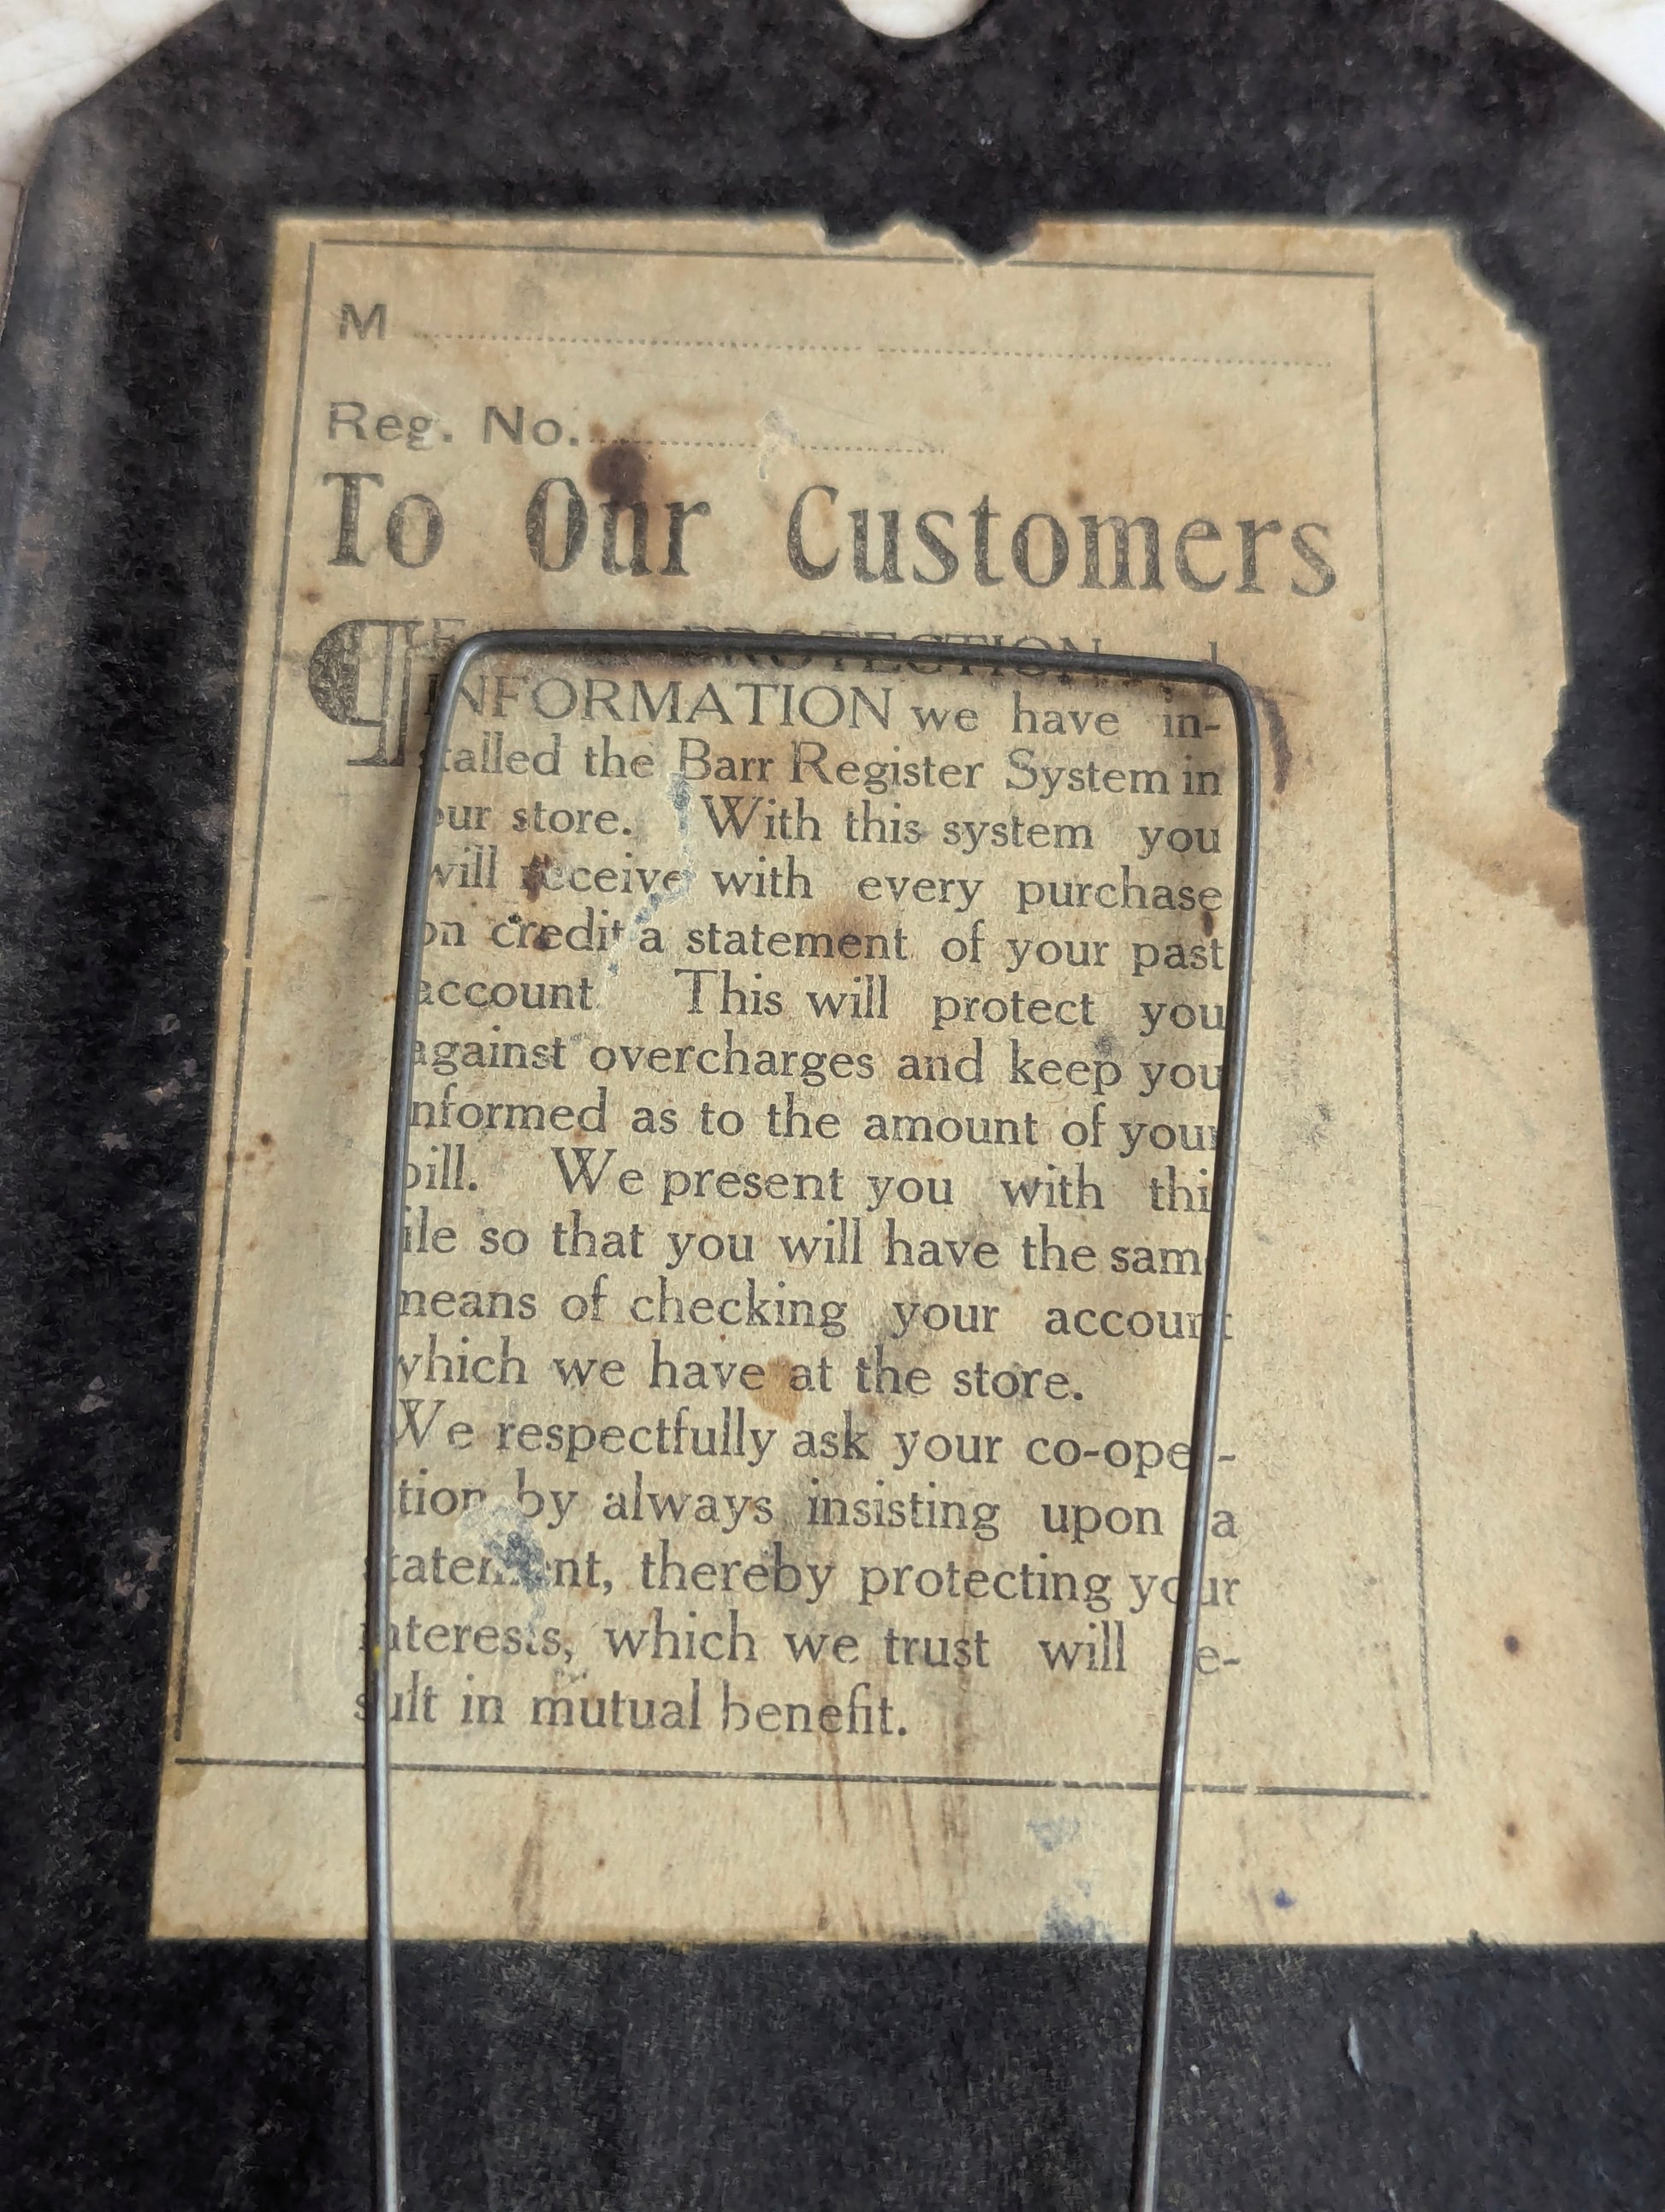 M
Reg. No.
To Our Customers
¶ PROTECTION
INFORMATION we have in-
stalled the Barr Register System in
our store. With this system you
will receive with every purchase
on credit a statement of your past
account This will protect you
against overcharges and keep you
informed as to the amount of your
bill. We present you with this
file so that you will have the same
means of checking your account
which we have at the store.
We respectfully ask your co-oper-
ation by always insisting upon a
statement, thereby protecting your
interests, which we trust will re-
sult in mutual benefit.